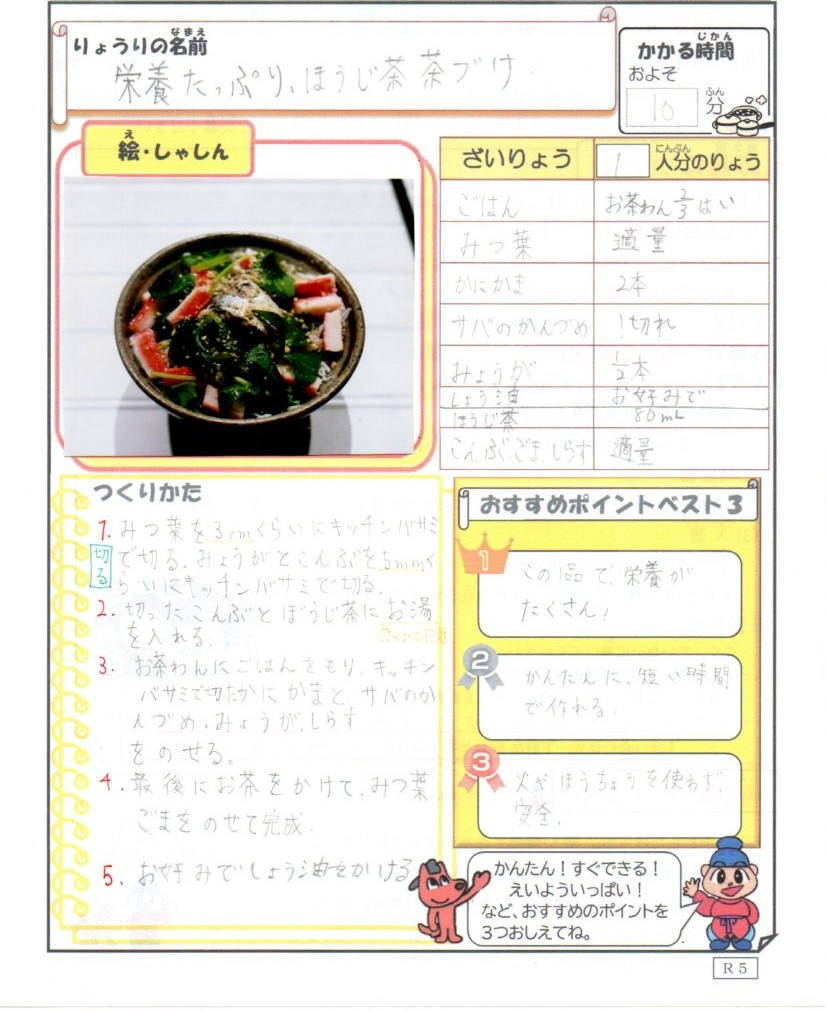 りょうりの名前
なまえ
栄養たっぷり、ほうじ茶茶づけ
かかる時間
じかん
およそ
10分
ふん
絵・しゃしん
え
ざいりょう
1人分のりょう
にんぶん
ごはん お茶わん2/3はい
みつ葉 適量
かにかま 2本
サバのかんづめ 1切れ
みょうが 1/2本
しょう油 お好みで
ほうじ茶 80mL
こんぶ、ごま、しらす 適量
つくりかた
1. みつ葉を3cmくらいにキッチンバサミ
で切る。みょうがとこんぶを5mmく
らいにキッチンバサミで切る。
切る
2. 切ったこんぶとほうじ茶にお湯
を入れる。
3. お茶わんにごはんをもり、キッチン
バサミで切ったかにかまと、サバのか
んづめ、みょうが、しらす
をのせる。
4. 最後にお茶をかけて、みつ葉
ごまをのせて完成。
5. お好みでしょう油をかける
おすすめポイントベスト3
1
この1品で、栄養が
たくさん!
2
かんたんに、短い時間
で作れる。
3
火やほうちょうを使わず、
安全。
かんたん!すぐできる!
えいよういっぱい!
など、おすすめのポイントを
3つおしえてね。
R5